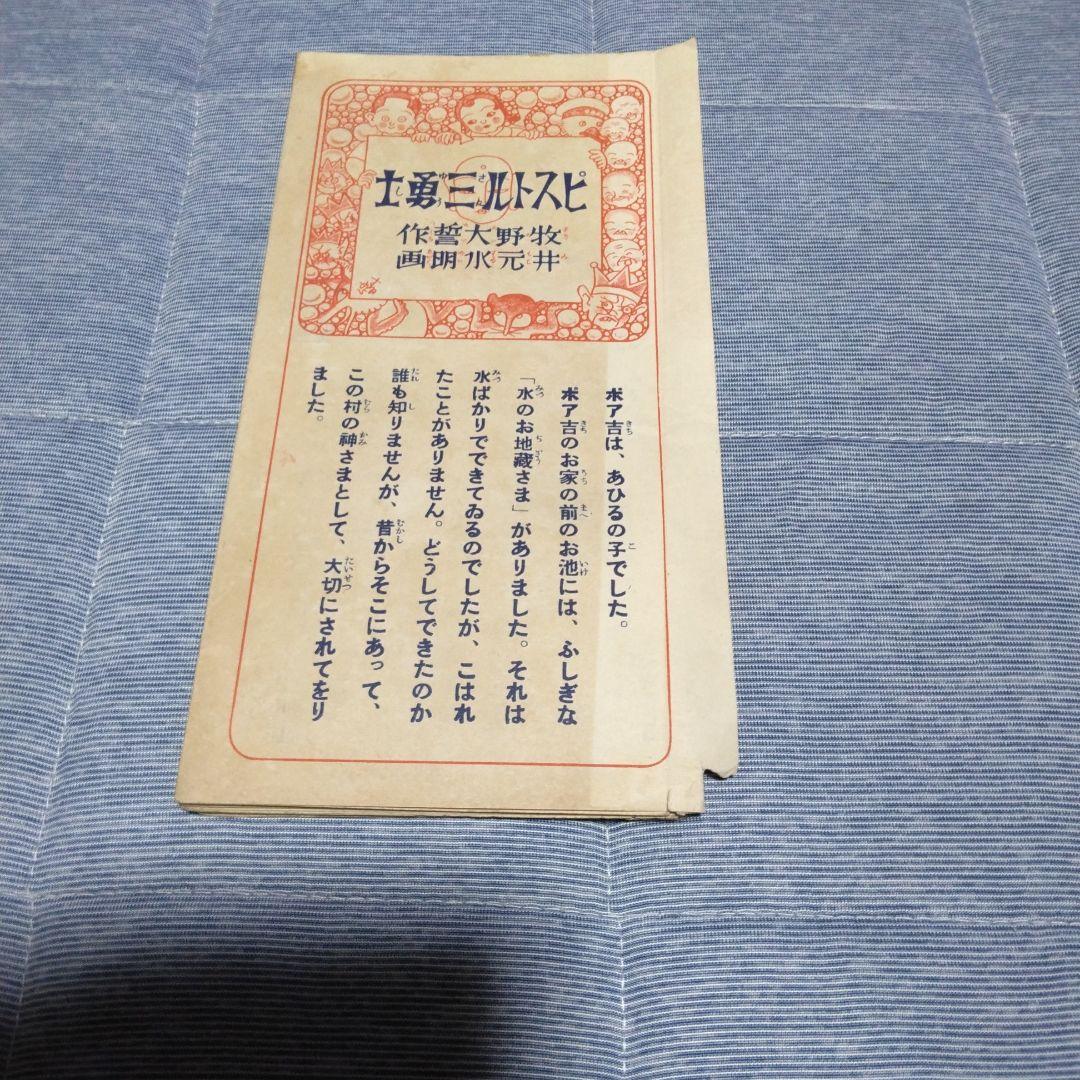 ピストル三勇士
牧野大誓作
井元水明画
ポア吉は、あひるの子でした。
ポア吉のお家の前のお池には、ふしぎな
「水のお地藏さま」がありました。それは
水ばかりでできてゐるのでしたが、こはれ
たことがありません。どうしてできたのか
誰も知りませんが、昔からそこにあって、
この村の神さまとして、大切にされてをり
ました。